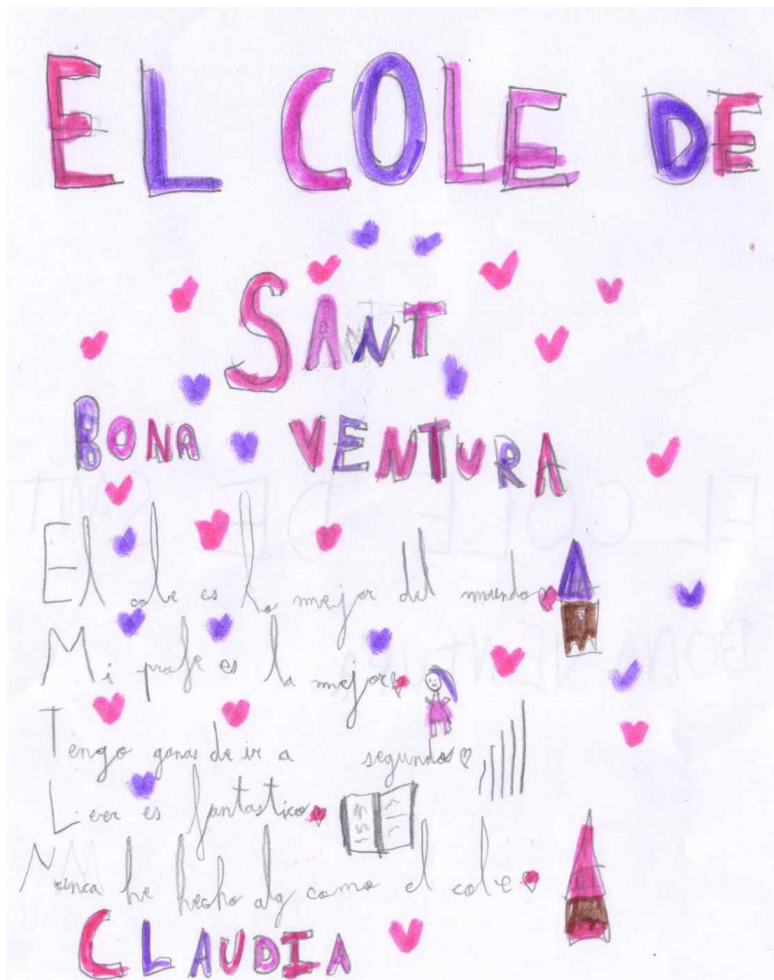 EL COLE DE
SANT
BONA VENTURA
El cole es lo mejor del mundo
Mi profe es la mejor
Tengo ganas de ir a segundo
Leer es fantastico
Nunca he hecho alg como el cole
CLAUDIA